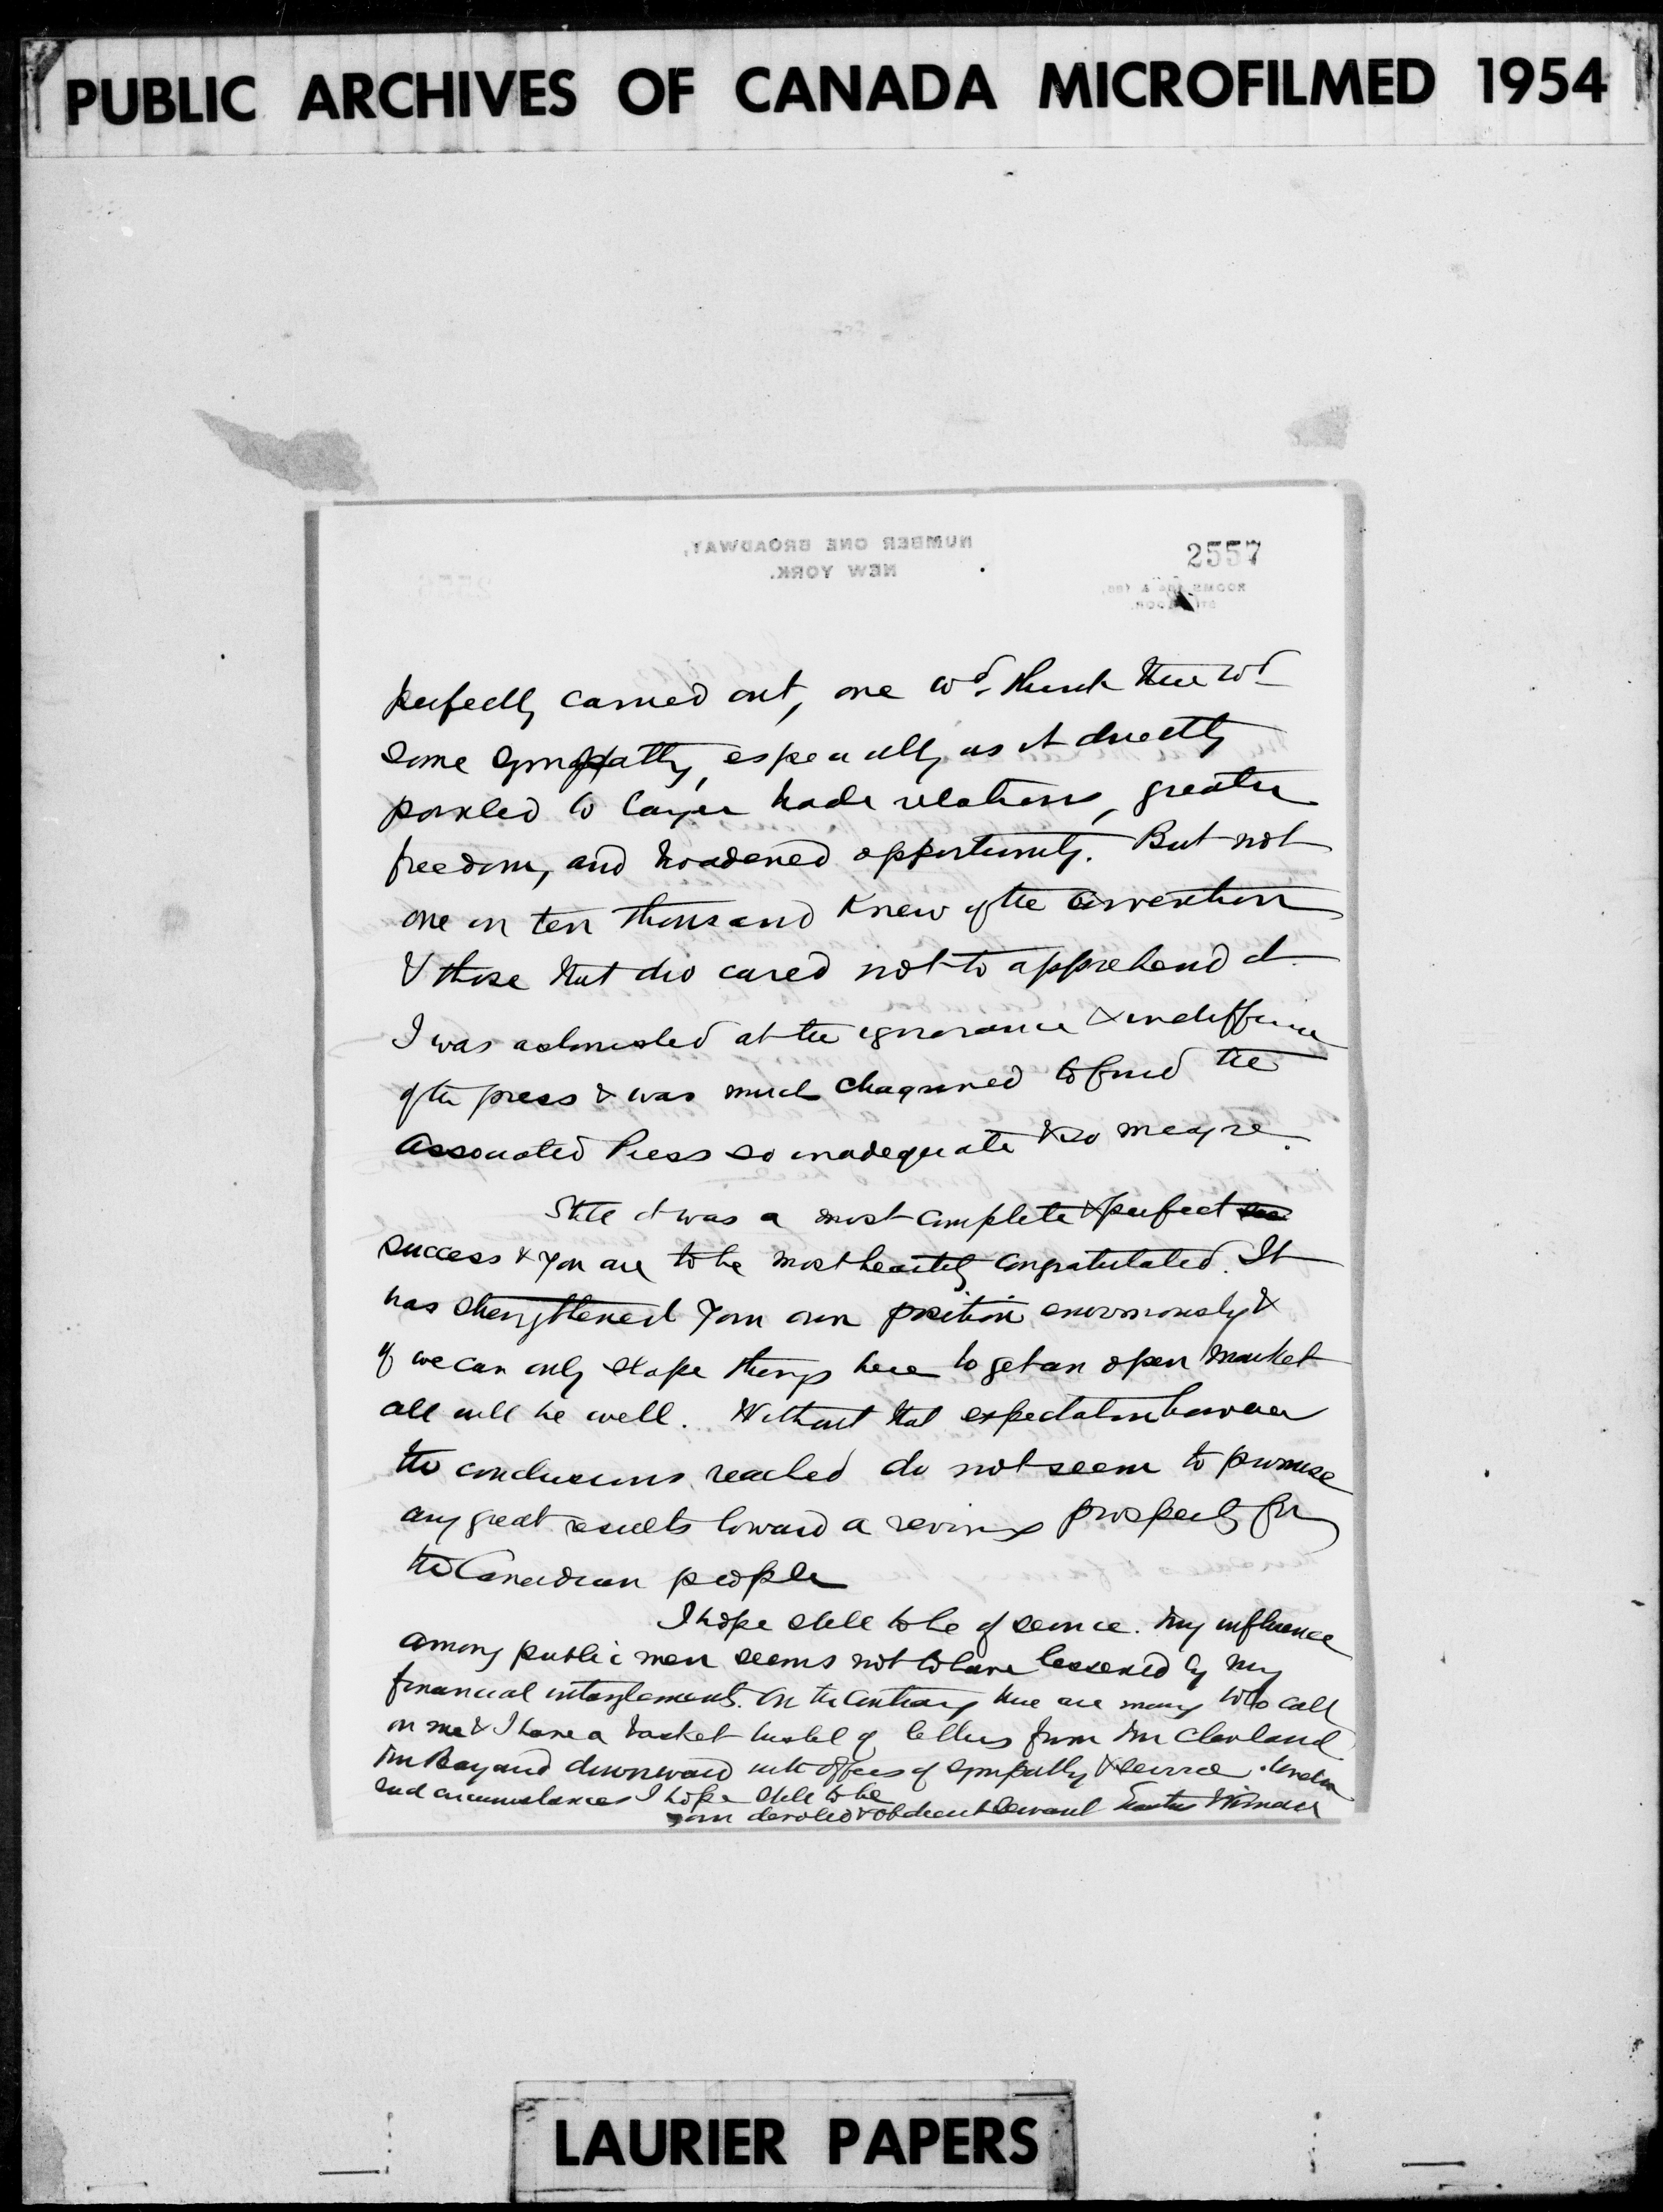 PUBLIC ARCHIVES OF CANADA MICROFILMED 1954
NUMBER ONE BROADWAY,
NEW YORK.
2557
ROOMS
perfectly carried out, one wd. think there wd
some sympathy, especially as it directly
pointed to larger trade relations, greater
freedom, and broadened opportunity. But not
one in ten thousand knew of the Convention
& those that did cared not to apprehend it
I was astonished at the ignorance & indifference
of the press & was much chagrined to find the
Associated Press so inadequate & so meagre.
Still it was a most complete & perfect suc
success & you are to be most heartily congratulated. It
has strengthened your own position enormously &
if we can only shape things here to get an open market
all will be well. Without that expectation however
the conclusions reached do not seem to promise
any great results toward a reviving prosperity for
the Canadian people
I hope still to be of service. My influence
among public men seems not to have lessened by my
financial intanglements. On the contrary there are many who call
on me & I have a basket of letters from Mr Cleveland
Mr Bayard downward with offers of sympathy & service. Under
such circumstances I hope still to be
your devoted & obedient servant Erastus Wiman
LAURIER PAPERS